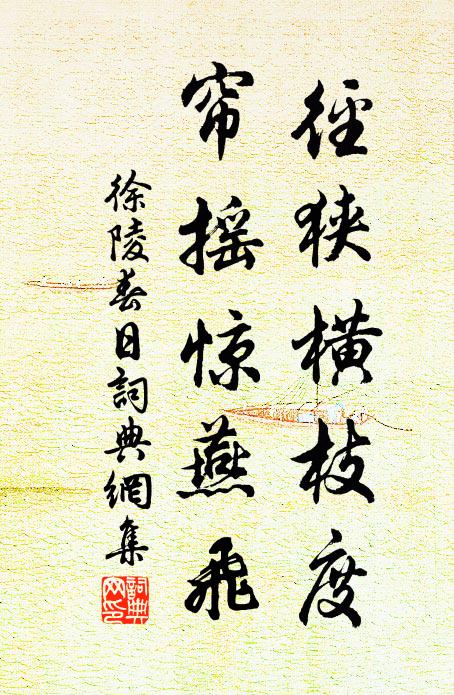 徑狹橫枝度
帘摇惊燕飛
徐陵春日詞典網集
詞典网印